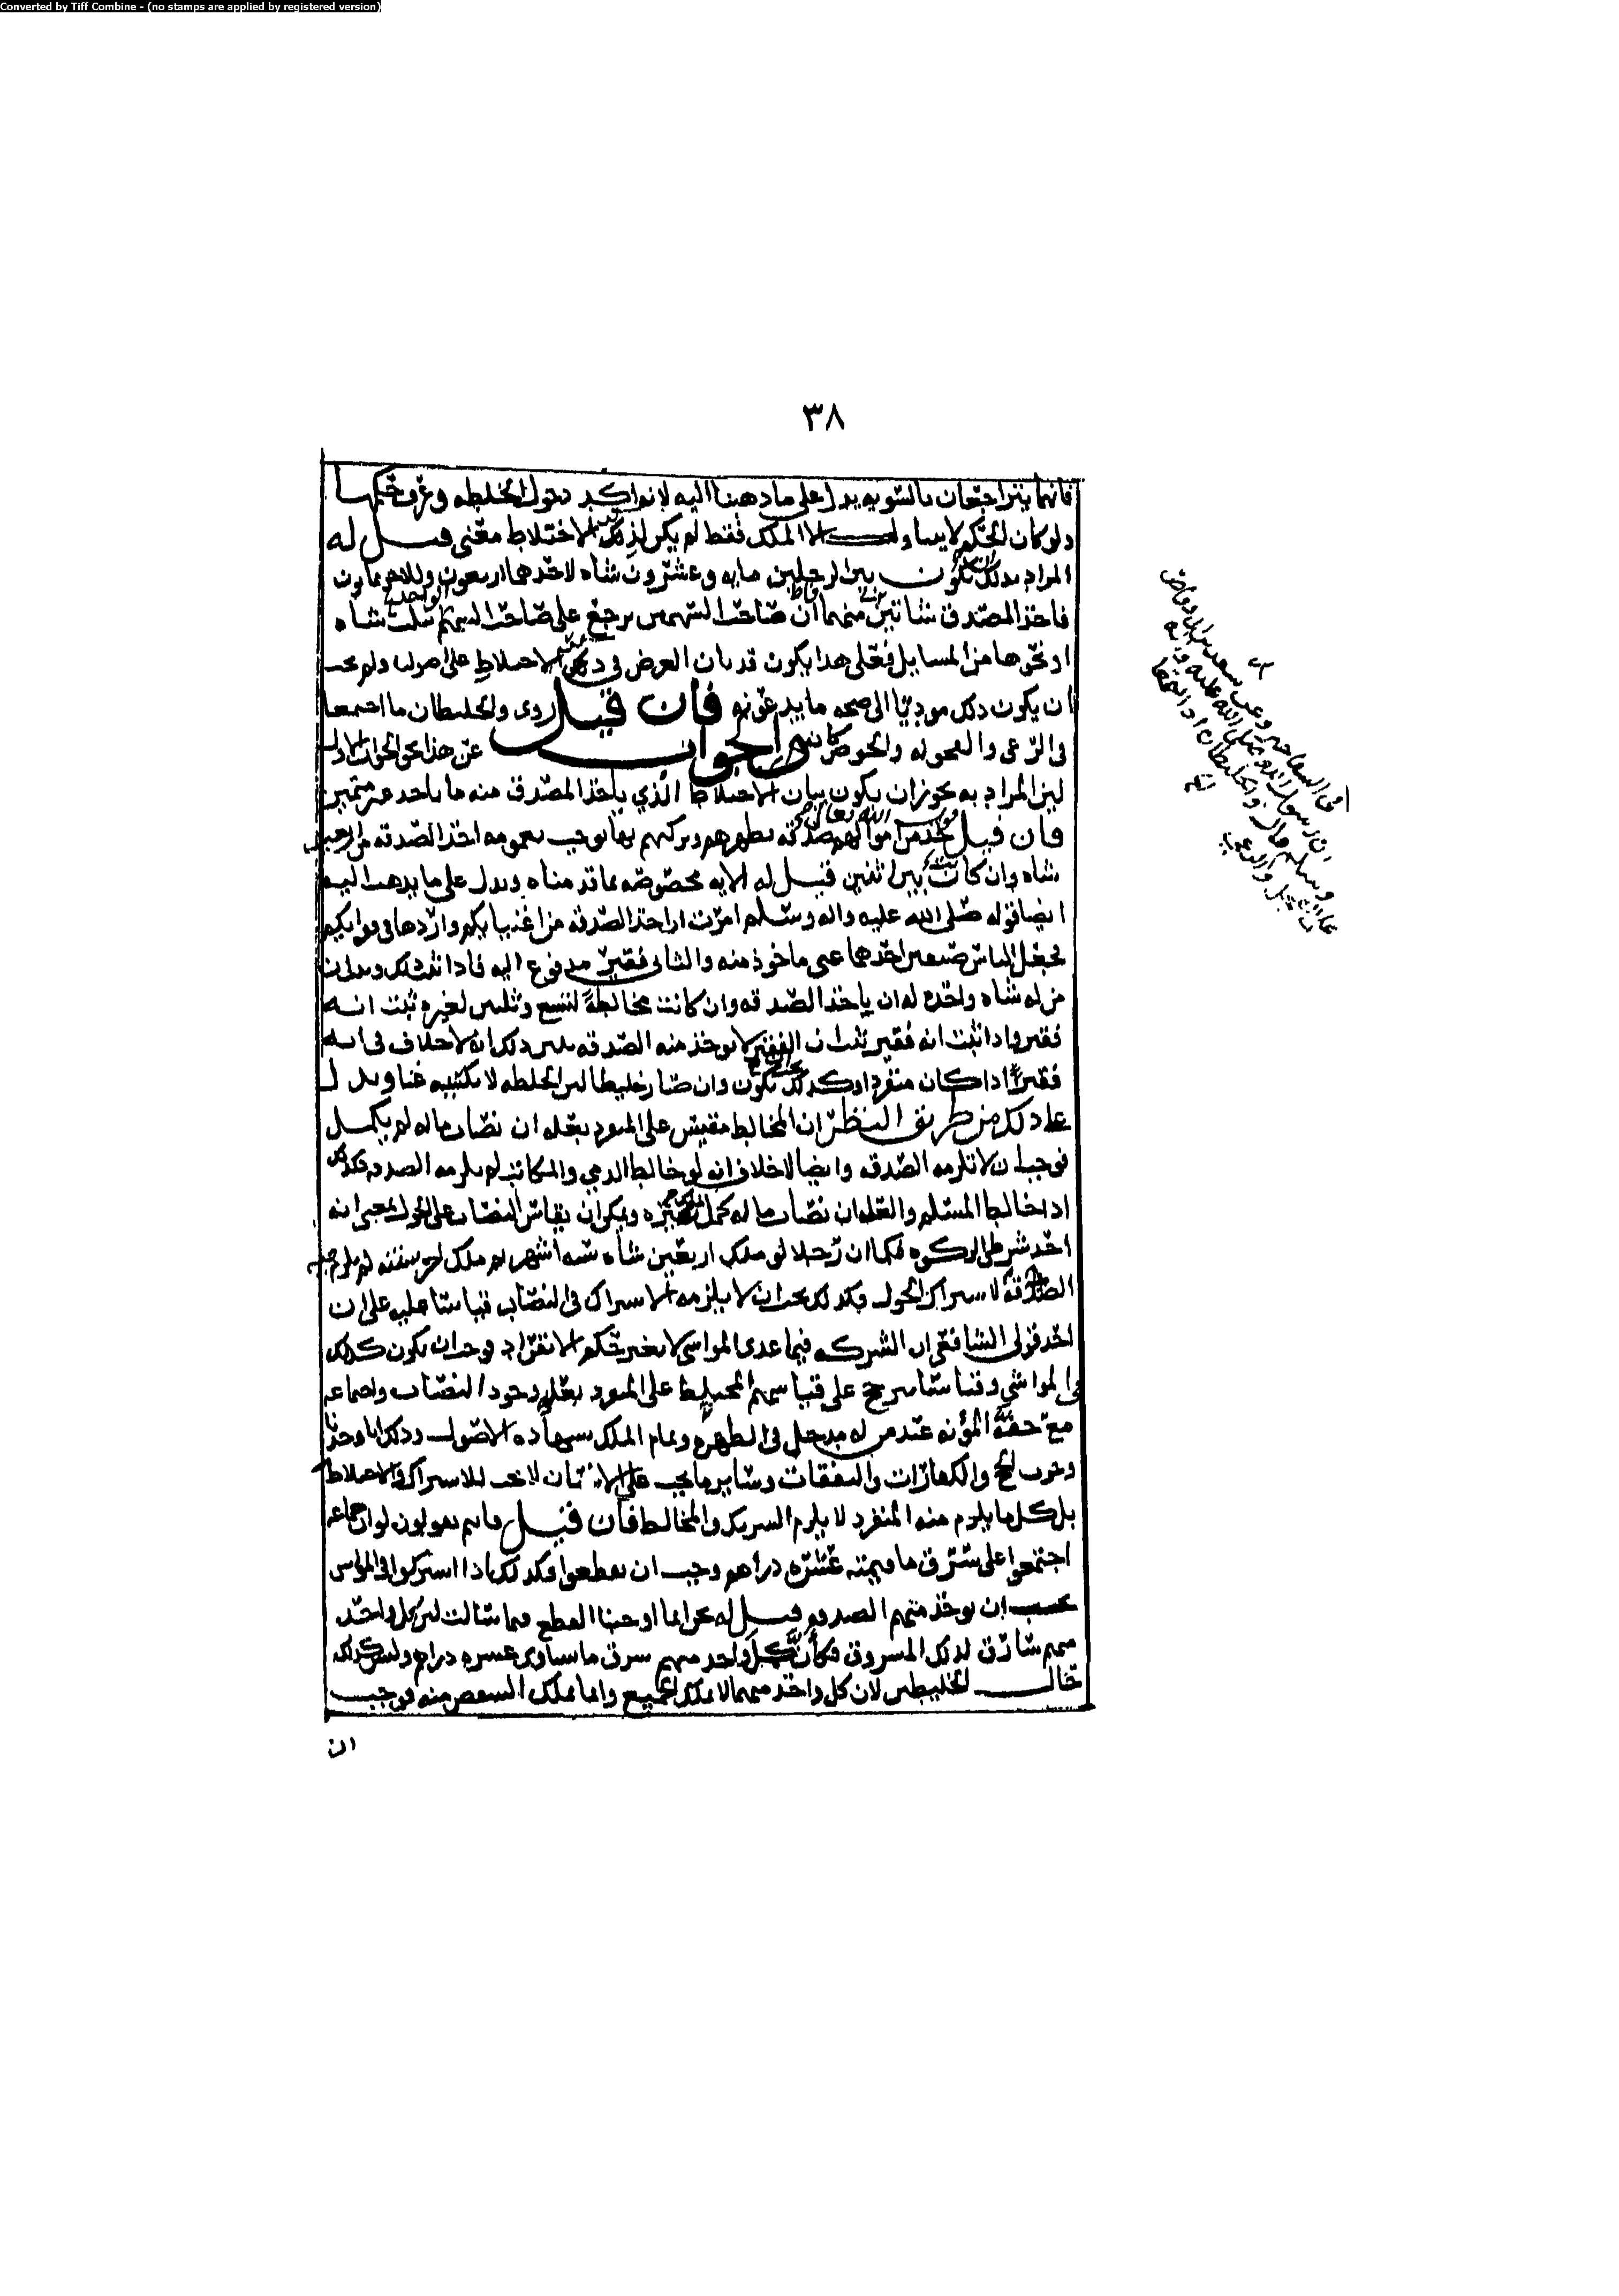 Converted by Tiff Combine - (no stamps are applied by registered version)
٣٨
فانهما يتراجعان بالسويه يدل على ما ذهبنا اليه لانه اكد دخول الخلطه وعرف حكمها
ولو كان الحكم لا يتناول الا الملك فقط لم يكن لذكر الاختلاط معنى قيل له
المراد بذلك ان يكون بين الرجلين مايه وعشرون شاه لاحدهما اربعون وللاخر ثمانون
فاخذ المصدق شاتين منهما ان صاحب السهمين يرجع على صاحب السهم الواحد بثلث شاه
او نحوها من المسايل فعلى هذا يكون قد بان الغرض في ذكر الاختلاط على اصولنا ولم يجب
ان يكون ذلك موديا الى صحه ما يدعونه فان قيل روى والخليطان ما اجتمعا
في الرعى والفحوله والحوض كان الجواب عن هذا نحو الجواب الاول
ليس المراد به يجوز ان يكون بيان الاختلاط الذي ياخذ المصدق منه ما ياخذ غير متميز
فان قيل قول الله تعالى خذ من اموالهم صدقه تطهرهم وتزكيهم بها يوجب بعمومه اخذ الصدقه من اربعين
شاه وان كانت بين اثنين قيل له الايه مخصوصه بما قدمناه ويدل على ما يذهب اليه
ايضا قوله صلى الله عليه واله وسلم امرت ان اخذ الصدقه من اغنيايكم واردها في فقرايكم
فجعل الناس صنفين احدهما غنى ماخوذ منه والثانى فقير مدفوع اليه فاذا ثبت ذلك وبان ان
من له شاه واحده له ان ياخذ الصدقه وان كانت مخالطة لتسع وثلثين لغيره ثبت انه
فقير واذا ثبت انه فقير ثبت ان الفقير لا يوخذ منه الصدقه يبين ذلك انه لا خلاف في انه
فقير اذا كان منفردا وكذلك يجب ان يكون وان صار خليطا لان الخلطه لا تكسبه غنا ويدل
على ذلك من طريق النظر ان المخالط مقيس على المنفرد بعله ان نصاب ماله لم يكمل
فوجب ان لا تلزمه الصدقه وايضا لا خلاف انه لو خالط الذمي والمكاتب لم يلزمه الصدقه فكذلك
اذا خالط المسلم والعله ان نصاب ماله كمل بملك غيره ويمكن ان يقاس النصاب على الحول بمعنى انه
احد شرطي الزكوه فكما ان رجلا لو ملك اربعين شاه سته اشهر ثم ملك اخر سته لم يلزم
الصدقه لاشتراك الحول فكذلك يجب ان لا يلزمه الاشتراك في النصاب قياسا عليه على ان
احد قولي الشافعى ان الشركه فيما عدى المواشى لا يغير حكم الانفراد فوجب ان يكون كذلك
في المواشي وقياسنا يرجح على قياسهم الخليط على المنفرد بعله وجود النصاب واجتماعه
مع خفه المؤنه عند من له مدخل في الطهره وتمام الملك بشهاده الاصول وذلك انا وجدنا
وجوب الحج والكفارات والنفقات وساير ما يجب على الانسان لا يجب للاشتراك والاختلاط
بل كل ما يلزم منه المنفرد لا يلزم الشريك والمخالط فان قيل ما تقولون لو ان جماعه
اجتمعوا على سرق ما قيمته عشره دراهم وجب ان يقطعوا فكذلك اذا اشتركوا في المواشى
يجب ان يوخذ منهم الصدقه قيل له نحن انما اوجبنا القطع فيما سالت لان كل واحد
منهم سارق لذلك المسروق فكأن كل واحد منهم سرق ما يساوى عشره دراهم وليس كذلك
حال الخليطين لان كل واحد منهما لا يملك الجميع وانما يملك البعض منه فوجب
ان
وعن سعد بن ابى وقاص
ان رسول الله صلى الله عليه واله
وسلم قال والخليطان ما اجتمعا
على الفحل والراعى